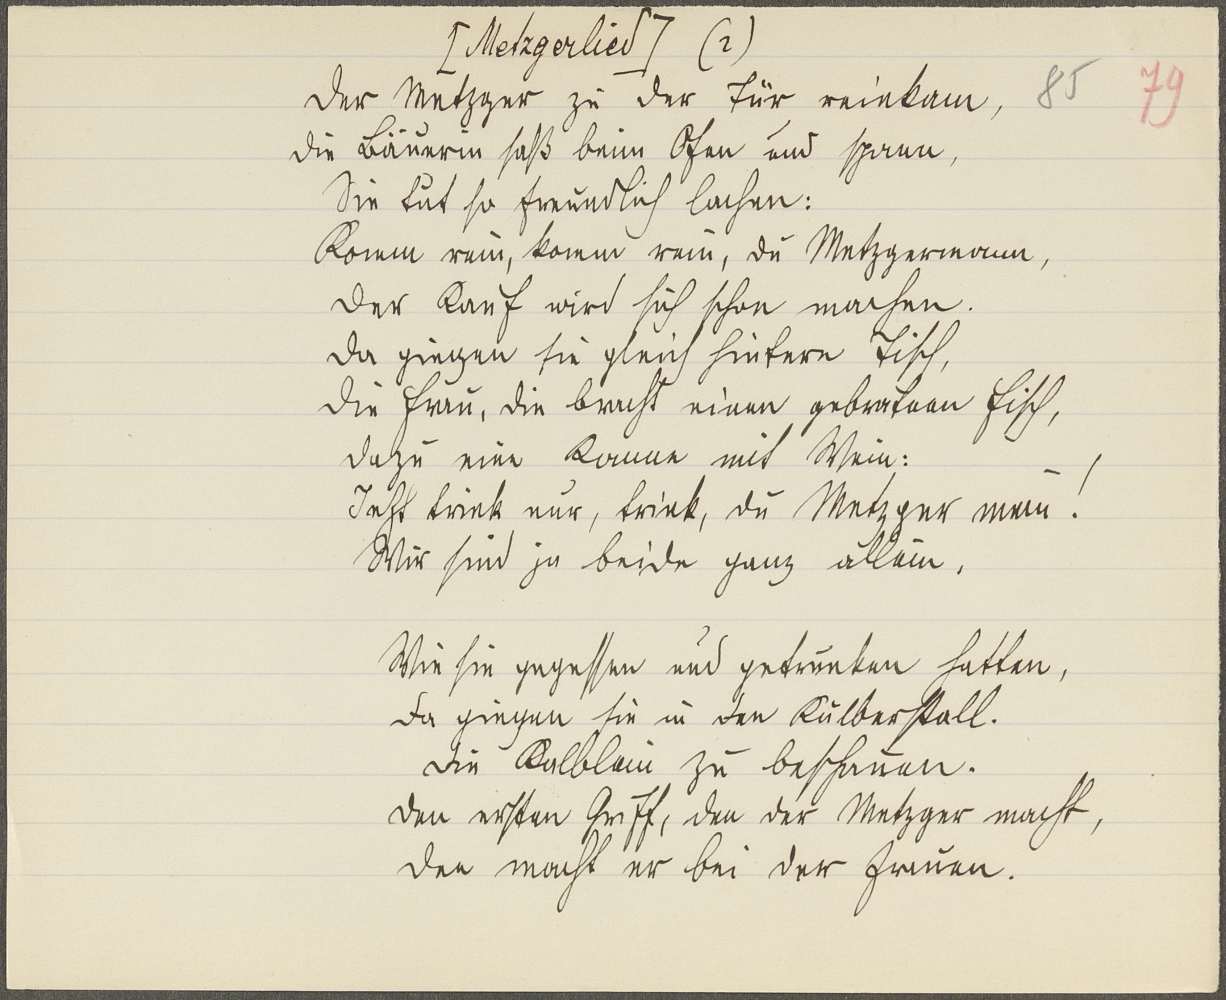 [Metzgerlied] (2)
Der Metzger zu der Tür reinkam, 85 79
die Bäuerin saß beim Ofen und spann,
Sie tut so freundlich lachen:
Komm rein, komm rein, du Metzgermann,
Der Kauf wird sich schon machen.
Da giengen sie gleich hintern Tisch,
Die Frau, die bracht einen gebratnen Fisch,
dazu eine Kanne mit Wein:
Jetzt trink nur, trink, du Metzger mein!
Wir sind ja beide ganz allein,
Wie sie gegessen und getrunken hatten,
da giengen sie in den Kälberstall.
die Kalblein zu beschauen.
den ersten Griff, den der Metzger macht,
den macht er bei der Frauen.